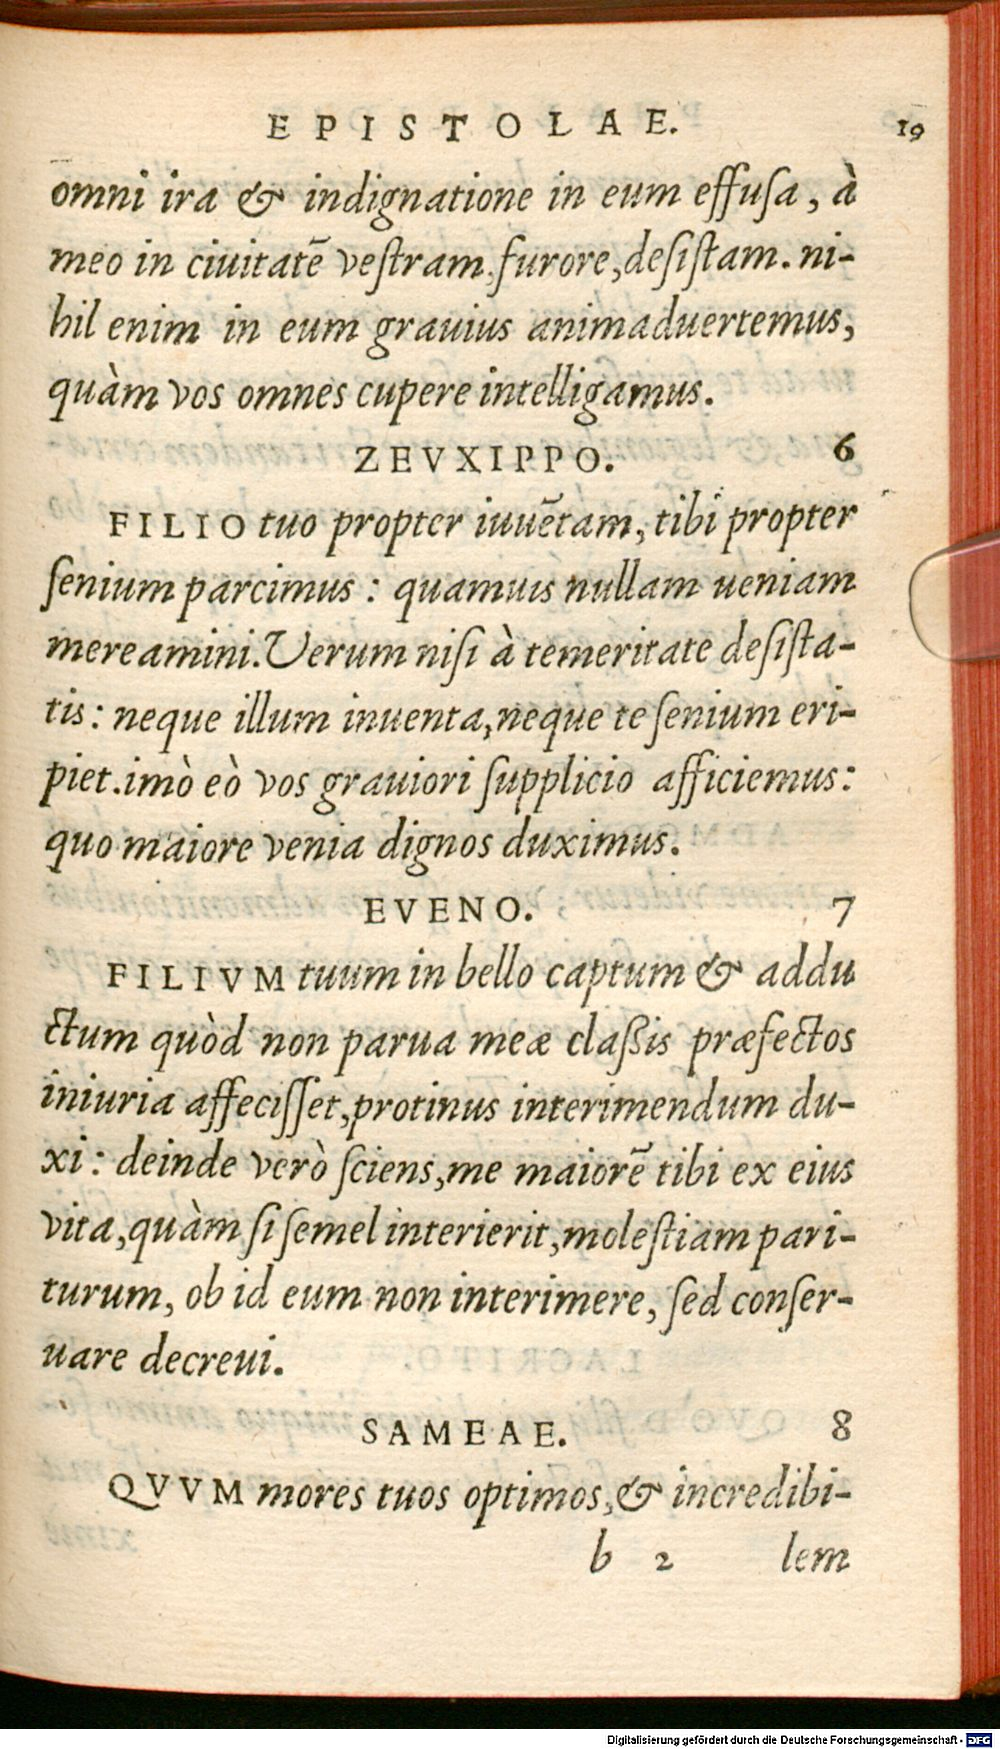 EPISTOLAE. 19
omni ira & indignatione in eum effusa, à
meo in ciuitatē vestram, furore, desistam. ni-
hil enim in eum grauius animaduertemus,
quàm vos omnes cupere intelligamus.
ZEVXIPPO. 6
FILIO tuo propter iuuētam, tibi propter
senium parcimus: quamuis nullam ueniam
mereamini. Verum nisi à temeritate desista-
tis: neque illum inuenta, neque te senium eri-
piet. imò eò vos grauiori supplicio afficiemus:
quo maiore venia dignos duximus.
EVENO. 7
FILIVM tuum in bello captum & addu
ctum quòd non parua meæ claßis præfectos
iniuria affecisset, protinus interimendum du-
xi: deinde verò sciens, me maiorē tibi ex eius
vita, quàm si semel interierit, molestiam pari-
turum, ob id eum non interimere, sed conser-
uare decreui.
SAMEAE. 8
QVVM mores tuos optimos, & incredibi-
b 2 lem
Digitalisierung gefördert durch die Deutsche Forschungsgemeinschaft - DFG